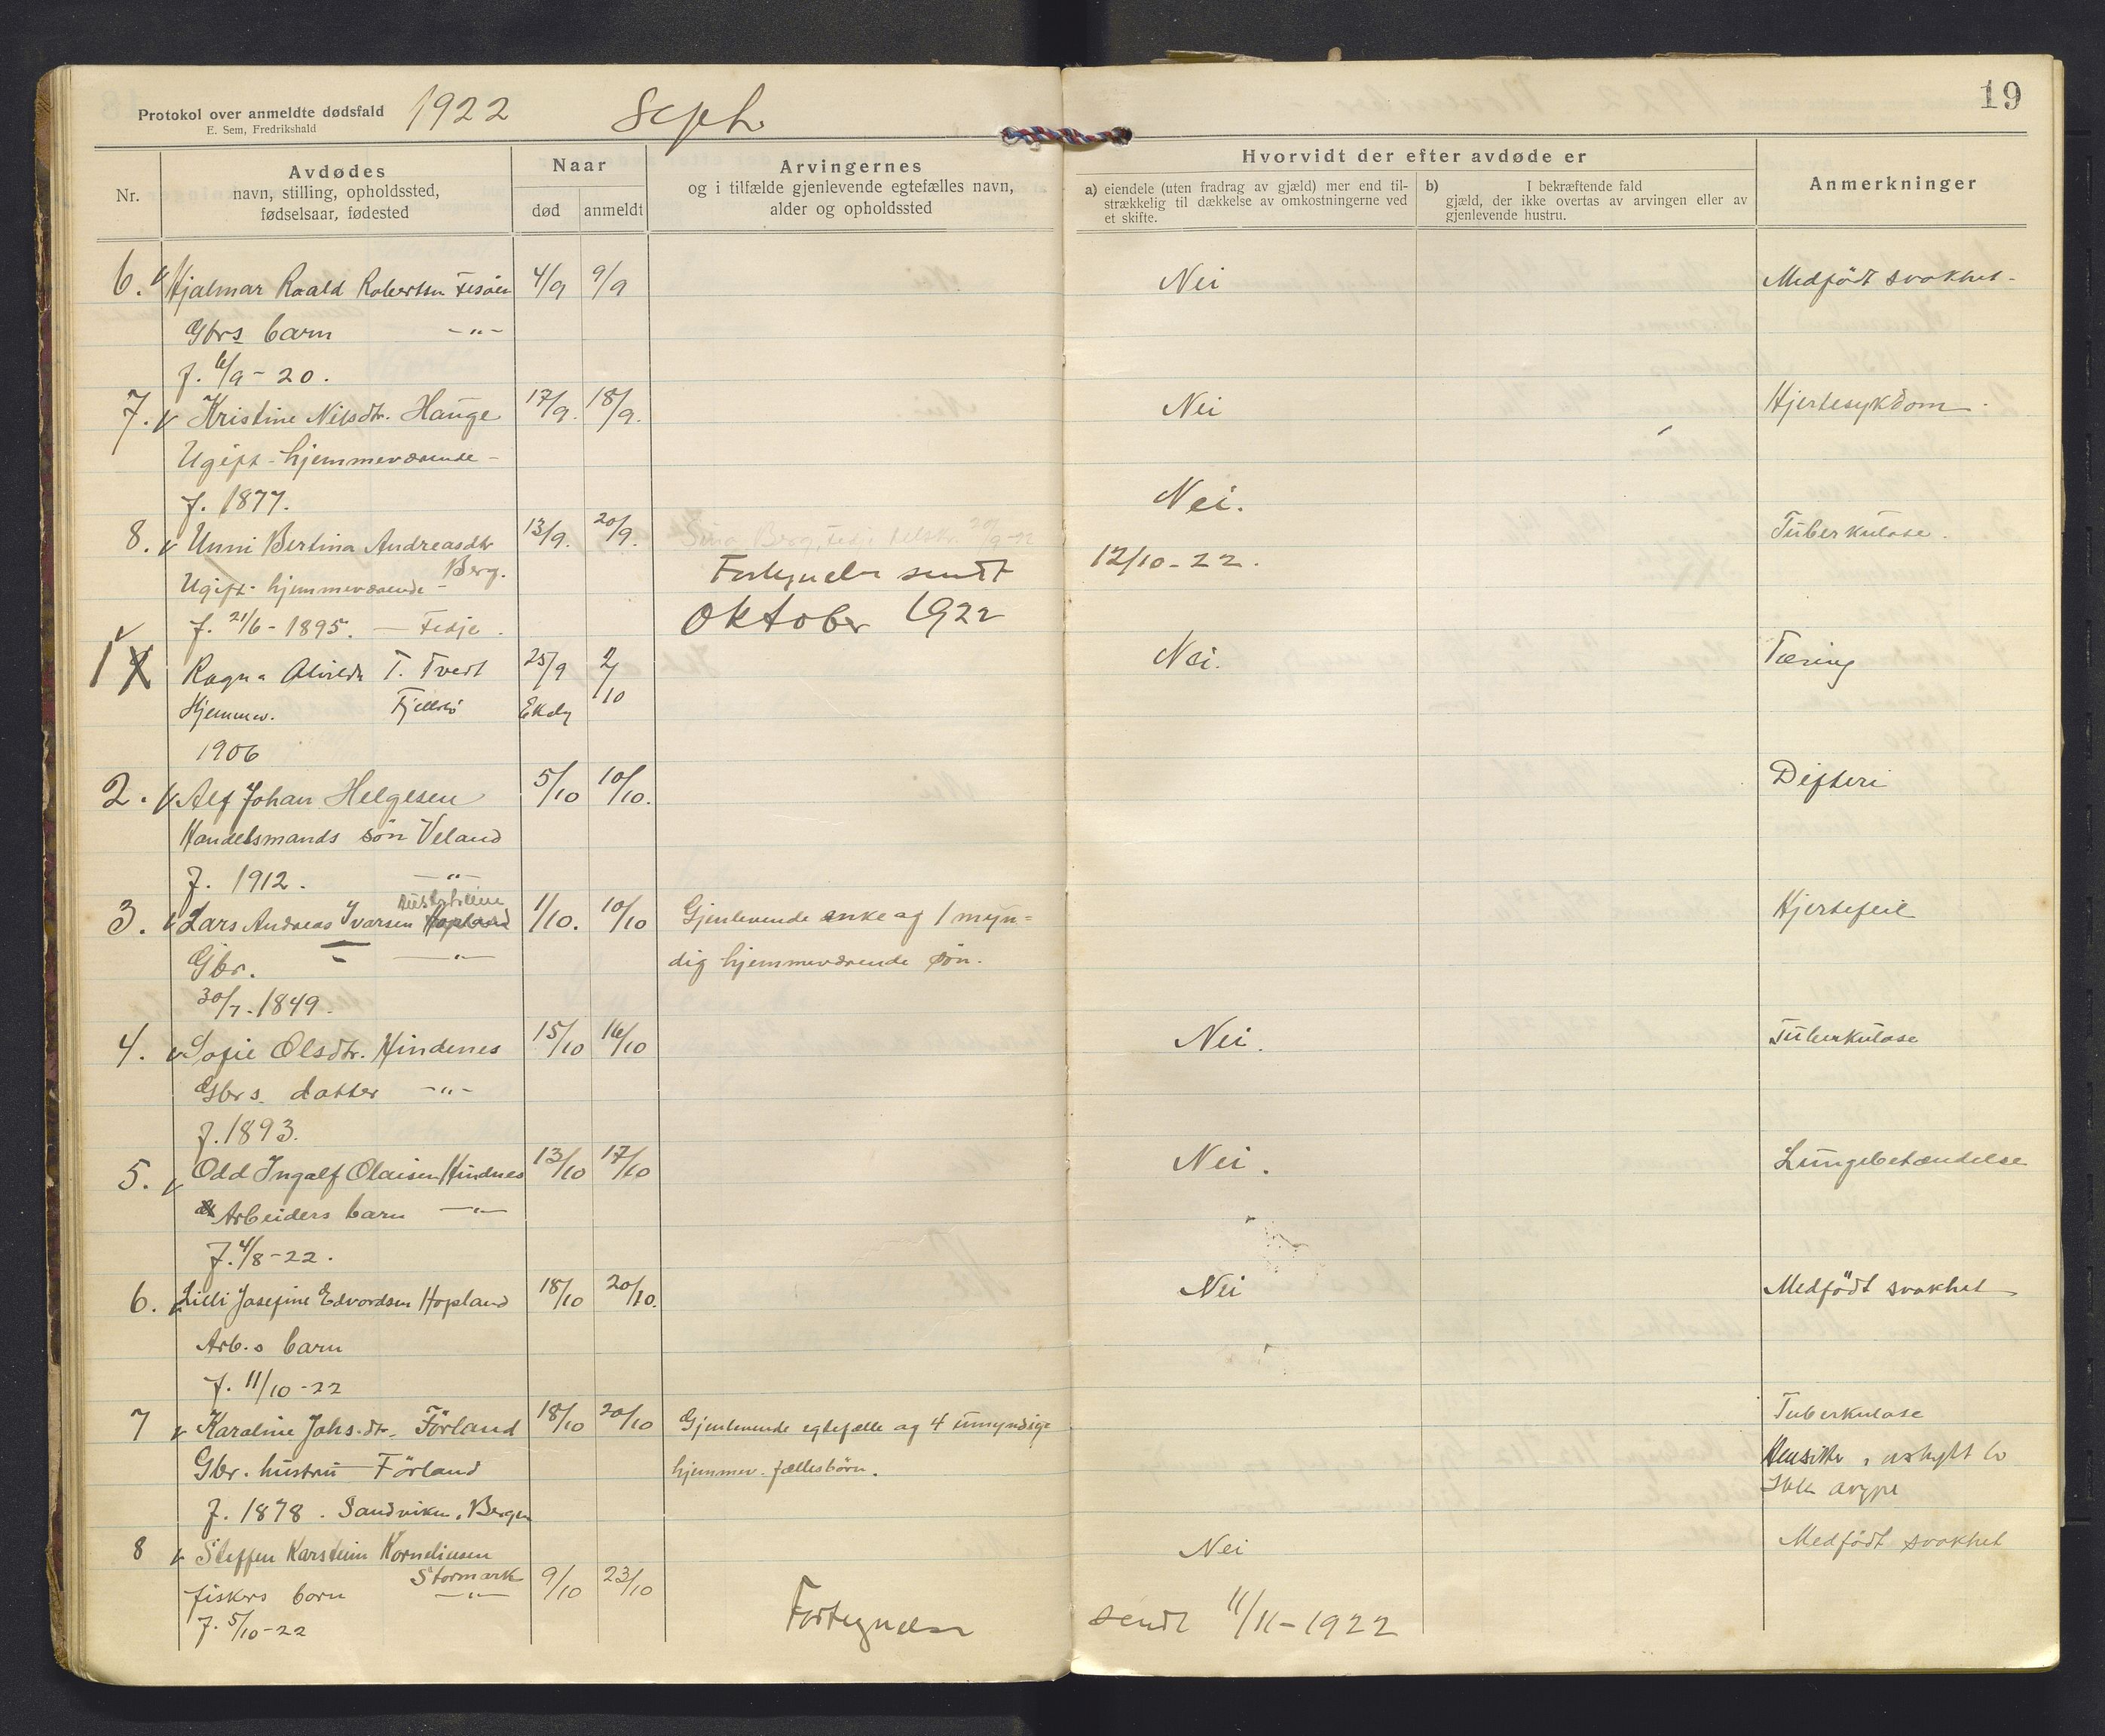 Protokol over anmeldte dødsfald 1922 Sept.
E. Sem, Fredrikshald
19
Nr.
Avdødes
navn, stilling, opholdssted,
fødselsaar, fødested
Naar
død anmeldt
Arvingernes
og i tilfælde gjenlevende egtefælles navn,
alder og opholdssted
Hvorvidt der efter avdøde er
a) eiendele (uten fradrag av gjæld) mer end til-
strækkelig til dækkelse av omkostningerne ved
et skifte.
b) I bekræftende fald
gjæld, der ikke overtas av arvingen eller av
gjenlevende hustru.
Anmerkninger
6. Hjalmar Roald Robertsen 4/9 9/9 Nei Medfödt svakhet-
Gbrs barn -"-
f. 6/9-20.
7. Kristine Nilsdtr. Hauge 17/9. 18/9. Nei Hjertesykdom.
Ugift-hjemmeværende-
f. 1877.
Nei.
8. Unni Bertina Andreasdtr 13/9. 20/9. Tuberkulose.
Berg.
Ugift-hjemmeværende-
f. 21/6-1895. - Fedje.
Fortegnelse sendt 12/10-22.
Oktober 1922
1 Ragna Alvilda T. Tvedt 25/9 2/10 Nei. Tæring
Hjemmev.
1906
2. Alf Johan Helgesen 5/10 10/10. Difteri
Handelsmands sön Veland
f. 1912. -"-
3. Lars Andreas Ivarsen Hopland 1/10. 10/10 Gjenlevende enke og 1 myn= Hjertefeil
Gbr. -"- dig hjemmeværende sön.
30/7-1849.
4. Sofie Olsdtr. Hindenes 15/10 16/10 Nei. Tuberkulose
Gbrs. datter -"-
f. 1893.
5. Odd Ingolf Olaisen Hindnes 13/10 17/10 Nei. Lungebetændelse
Arbeiders barn -"-
f. 4/8-22.
6. Lilli Josefine Edvardsen Hopland 18/10 20/10. Nei Medfödt svakhet
Arb.s barn
f. 11/10-22
7 Karoline Johs.dtr. Förland 18/10 20/10 Gjenlevende egtefælle og 4 umyndige Tuberkulose
Gbr. hustru Förland hjemmev. fællesbörn.
f. 1878. Sandviken, Bergen
8 Steffen Karsteim Korneliusen Nei Medfödt svakhet
Stormark
fiskers barn -"- 9/10 23/10
f. 5/10-22
Fortegnelse sendt 11/11-1922